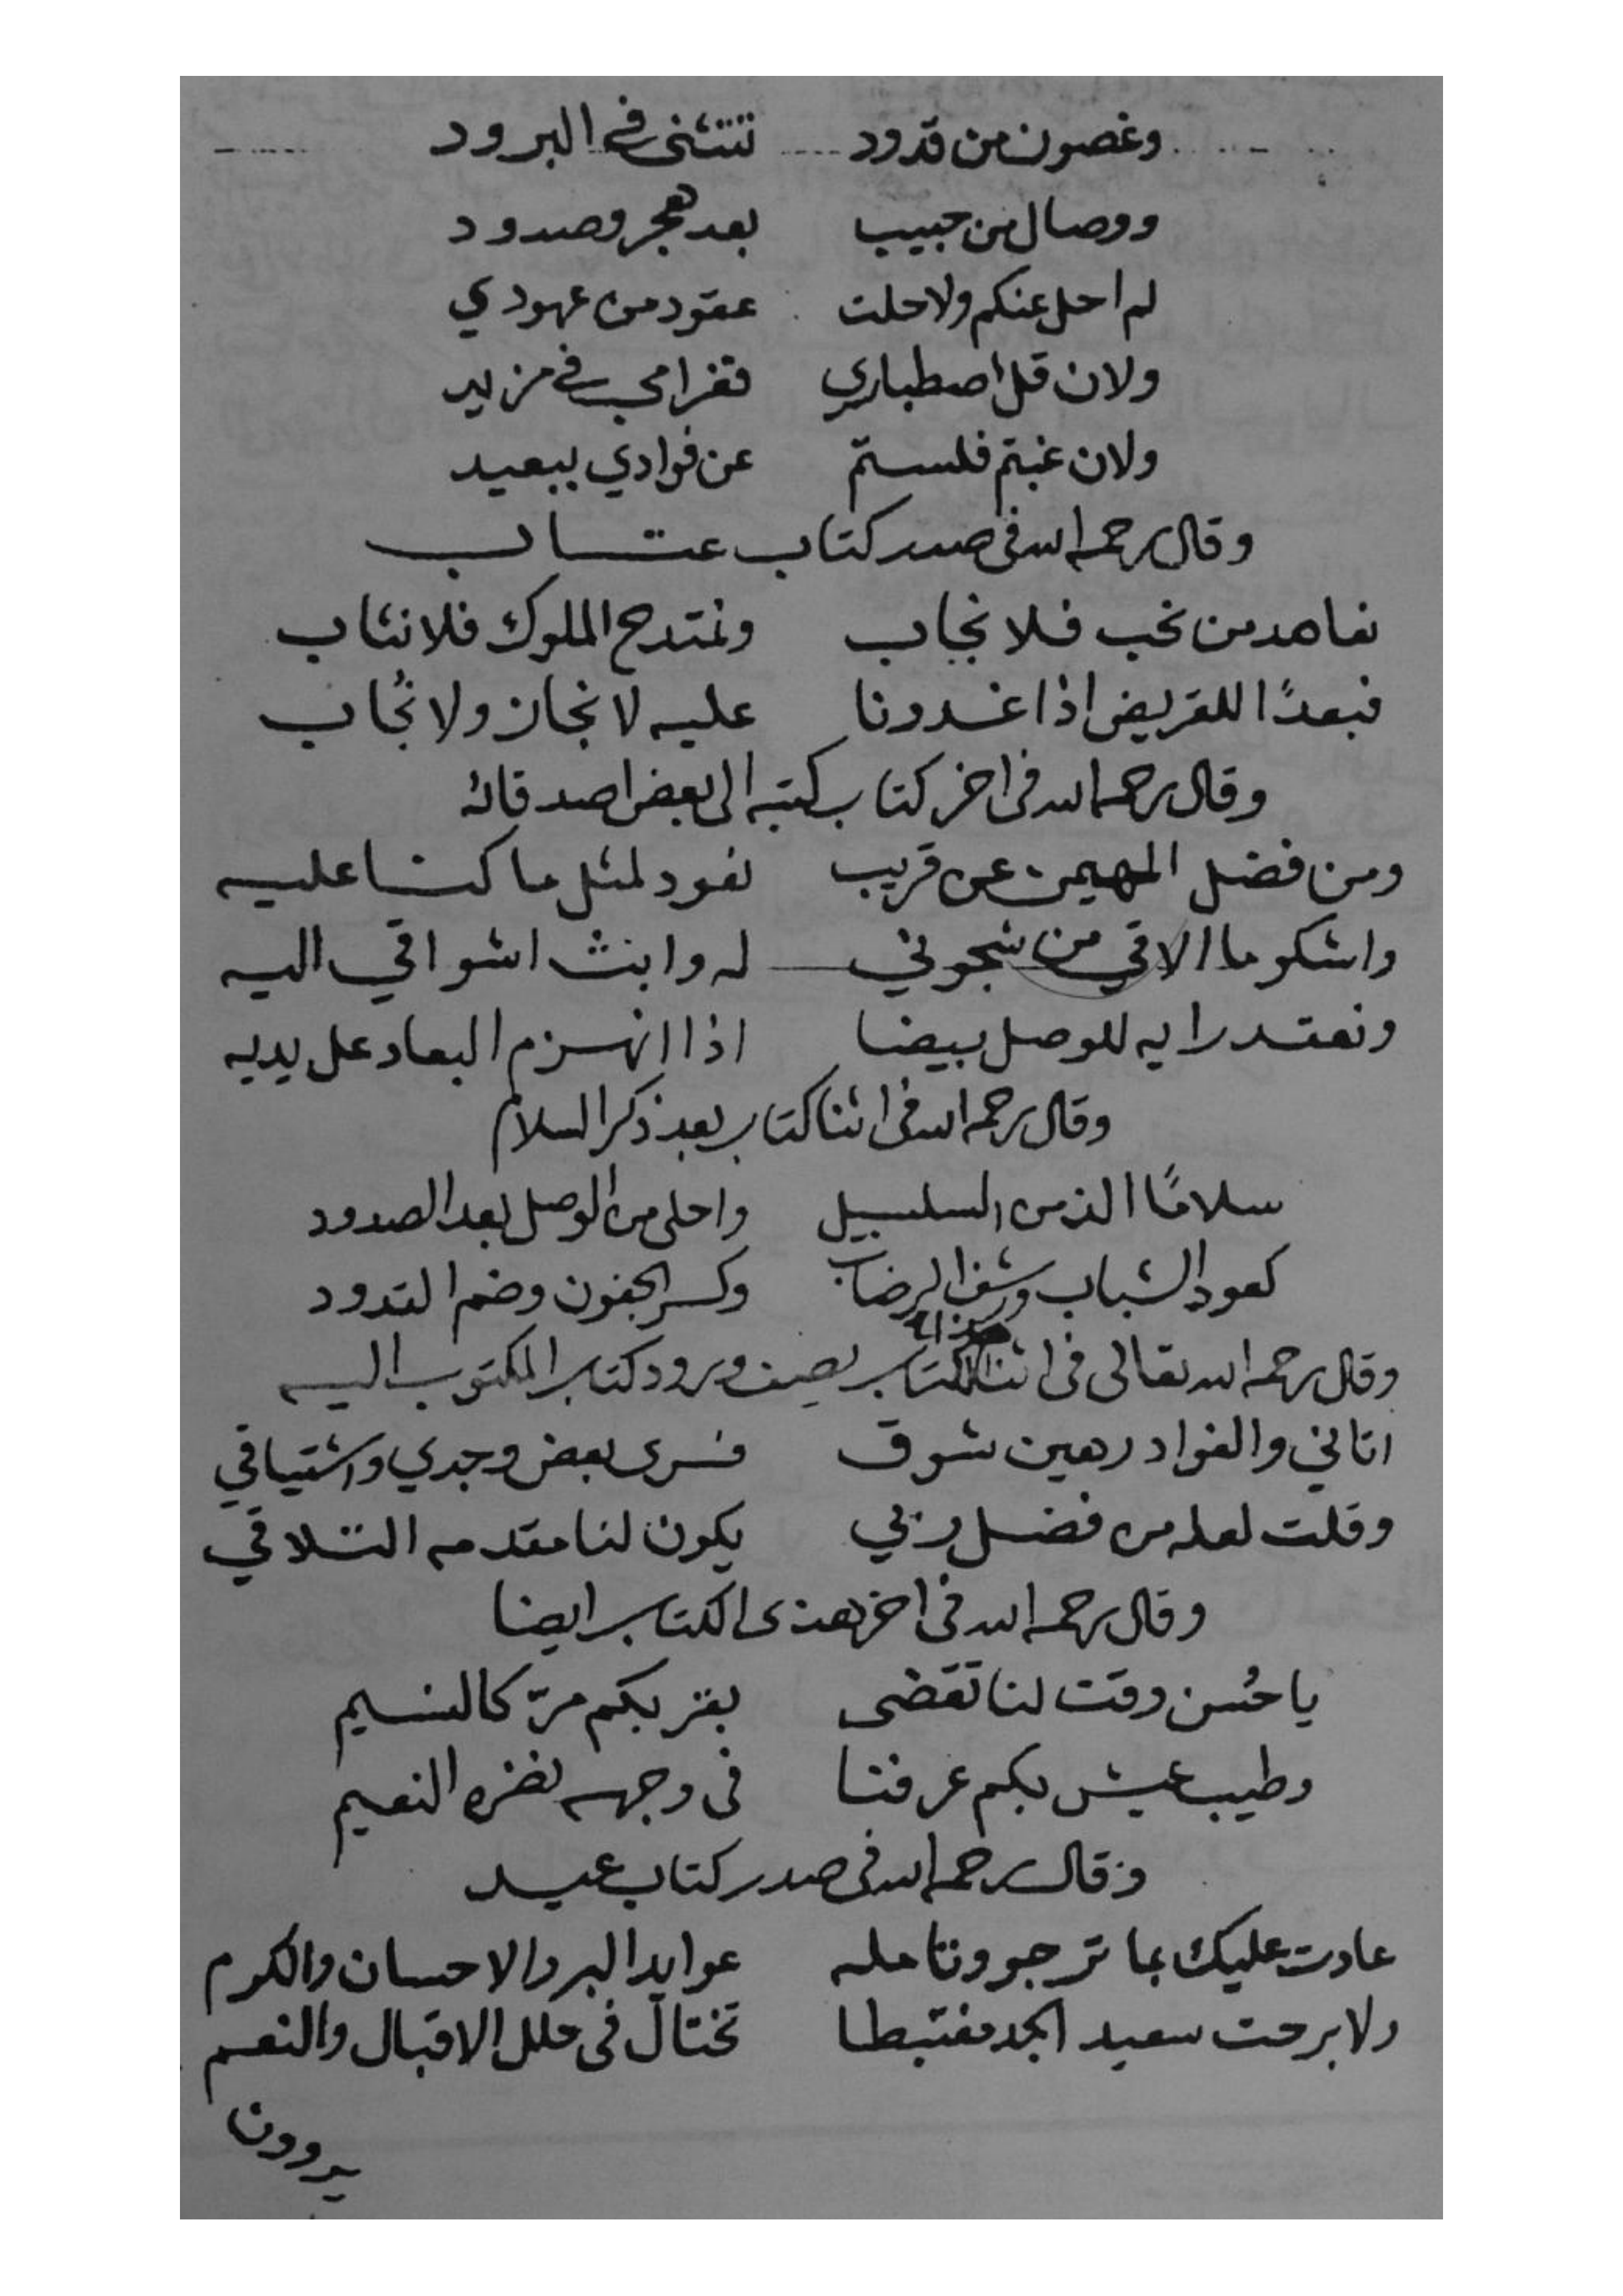 وغصون من قدود تنثنى فى البرود
ووصال من حبيب بعد هجر وصدود
لم احل عنكم ولا حلت عقود من عهودي
ولان قل اصطباري فغرامي في مزيد
ولان غبتم فلستم عن فوادي ببعيد
وقال رحمه الله فى صدر كتاب عتاب
نعاهد من نحب فلا نجاب ونمتدح الملوك فلا نثاب
فبعدًا للقريض اذا غدونا عليه لا نجاز ولا نُجاب
وقال رحمه الله فى اخر كتاب كتبه الى بعض اصدقائه
ومن فضل المهيمن عن قريب نعود لمثل ما كنا عليه
واشكو ما الاقي من شجوني له وابث اشواقي اليه
ونعقد رايه للوصل بيضا اذا انهزم البعاد على يديه
وقال رحمه الله فى اثنا كتاب بعد ذكر السلام
سلامًا الذ من السلسبيل واحلى من الوصل بعد الصدود
كعود الشباب ورشف الرضاب وكسر الجفون وضم القدود
وقال رحمه الله تعالى فى اثنا هذا الكتاب يصف ورود كتاب المكتوب اليه
اتاني والفواد رهين شوق فسرى بعض وجدي واشتياقي
وقلت لعله من فضل ربي يكون لنا مقدمه التلاقي
وقال رحمه الله فى اخر هذى الكتاب ايضا
يا حُسن وقت لنا تقضى بقربكم مرّ كالنسيم
وطيب عيش بكم عرفنا فى وجهه نضره النعيم
وقال رحمه الله فى صدر كتاب عيد
عادت عليك بما ترجو وتامله عوايد البر والاحسان والكرم
ولا برحت سعيد الجد مغتبطا تختال فى حلل الاقبال والنعم
يروون